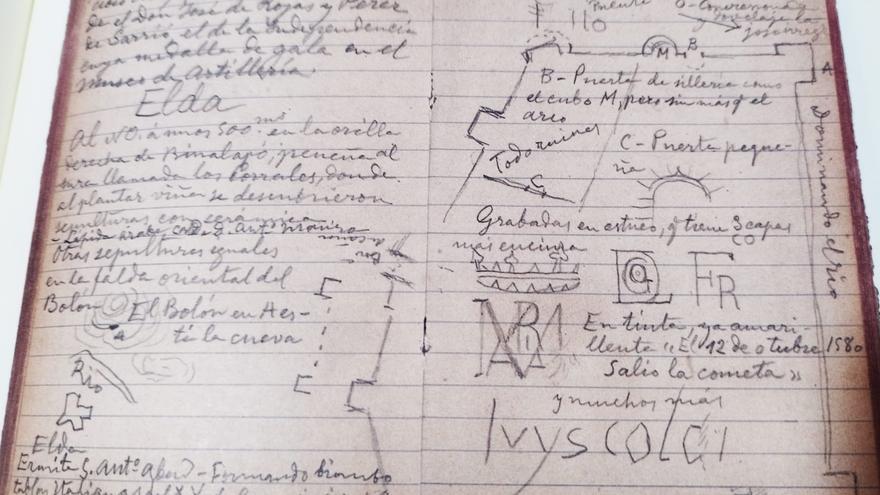 de el Don José de Rojas y Pérez
de Sarrió el de la Independencia
cuya medalla de gala en el
museo de Artillería.
Elda
Al NO. á unos 500 ms en la orilla
derecha de Binalapó, pequeña al
tura llamada los Corrales, donde
al plantar viñas se descubrieron
sepulturas con cerámica
Otras sepulturas iguales
en la falda oriental del
Bolón
El Bolón en A es-
tá la cueva
A
Río
Elda
Ermita S. Antº Abad - Formando biombo
F
110
M
B
A
B - Puerta de sillería como
el cubo M, pero sin más q el
arco
Todo ruinas
C
C - Puerta peque-
ña
Dominando el río
Grabadas en estuco, q tiene 3 capas
más encima
CO
FR
En tinta, ya amari-
llenta "El 12 de otubre 1580
Salio la cometa"
y muchos más
IVVSCOLCI